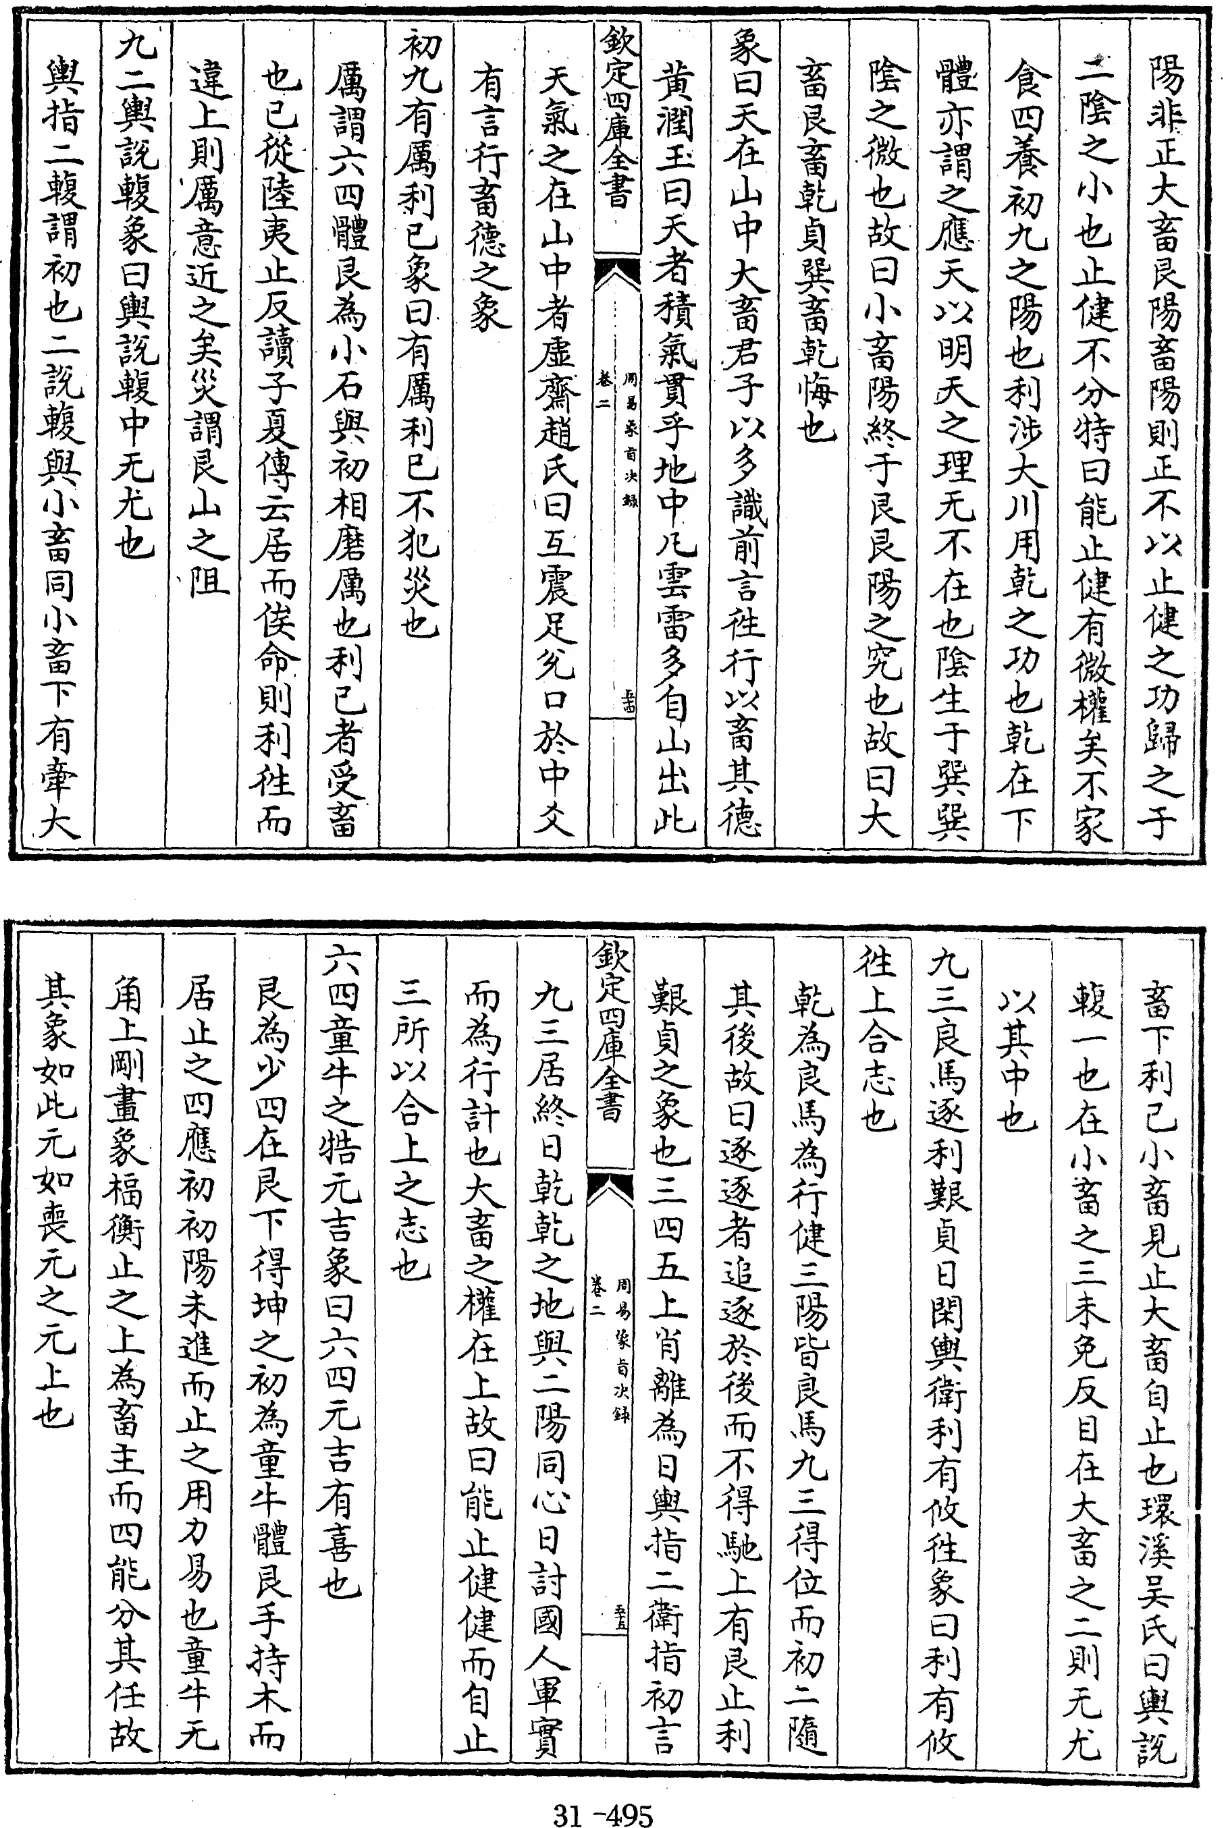 陽非正大畜艮陽畜陽則正不以止健之功歸之于
二陰之小也止健不分特曰能止健有微權矣不家
食四養初九之陽也利涉大川用乾之功也乾在下
體亦謂之應天以明天之理无不在也陰生于巽巽
陰之微也故曰小畜陽終于艮艮陽之究也故曰大
畜艮畜乾貞巽畜乾悔也
象曰天在山中大畜君子以多識前言徃行以畜其德
黄潤玉曰天者積氣貫乎地中凡雲雷多自山出此
欽定四庫全書
周易象旨决録
卷二
五十四
天氣之在山中者虛齋趙氏曰互震足兊口於中爻
有言行畜德之象
初九有厲利已象曰有厲利已不犯災也
厲謂六四體艮為小石與初相磨厲也利已者受畜
也已從陸夷止反讀子夏傳云居而俟命則利徃而
違上則厲意近之矣災謂艮山之阻
九二輿説輹象曰輿説輹中无尤也
輿指二輹謂初也二説輹與小畜同小畜下有牽大
畜下利已小畜見止大畜自止也環溪吴氏曰輿説
輹一也在小畜之三未免反目在大畜之二則无尤
以其中也
九三良馬逐利艱貞日閑輿衛利有攸徃象曰利有攸
徃上合志也
乾為良馬為行健三陽皆良馬九三得位而初二隨
其後故曰逐逐者追逐於後而不得馳上有艮止利
艱貞之象也三四五上肖離為日輿指二衛指初言
欽定四庫全書
周易象旨决録
卷二
五十五
九三居終日乾乾之地與二陽同心日討國人軍實
而為行計也大畜之權在上故曰能止健健而自止
三所以合上之志也
六四童牛之牿元吉象曰六四元吉有喜也
艮為少四在艮下得坤之初為童牛體艮手持木而
居止之四應初初陽未進而止之用力易也童牛无
角上剛畫象楅衡止之上為畜主而四能分其任故
其象如此元如喪元之元上也
31-495